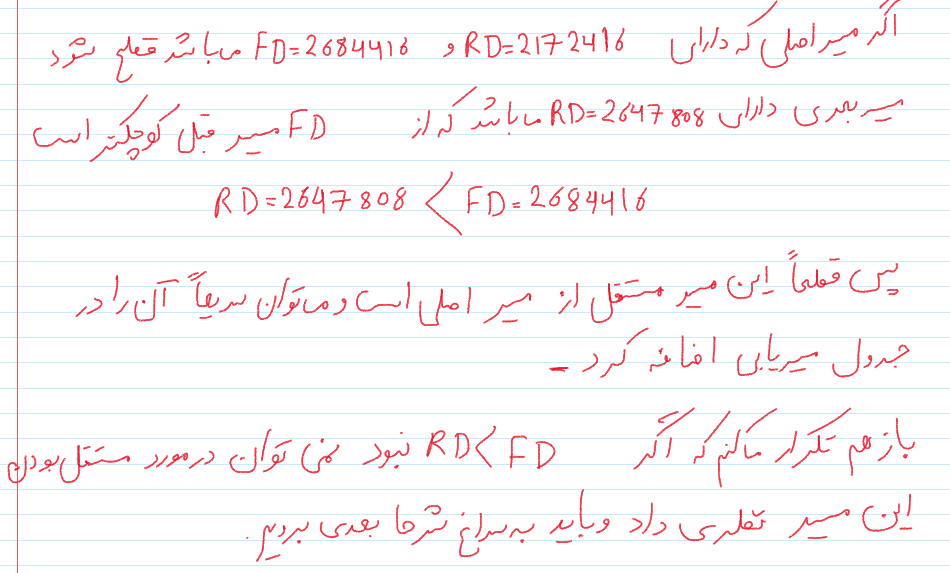 اگر مسیر اصلی که دارای RD=2172416 و FD=2684416 می باشد قطع شود
مسیر بعدی دارای RD=2647808 می باشد که از FD مسیر قبل کوچکتر است
RD=2647808 < FD=2684416
پس قطعاً این مسیر مستقل از مسیر اصلی است و می توان سریعاً آن را در
جدول مسیریابی اضافه کرد -
باز هم تکرار می کنم که اگر RD<FD نبود نمی توان در مورد مستقل بودن
این مسیر نظری داد و باید به سراغ شرط بعدی برویم.